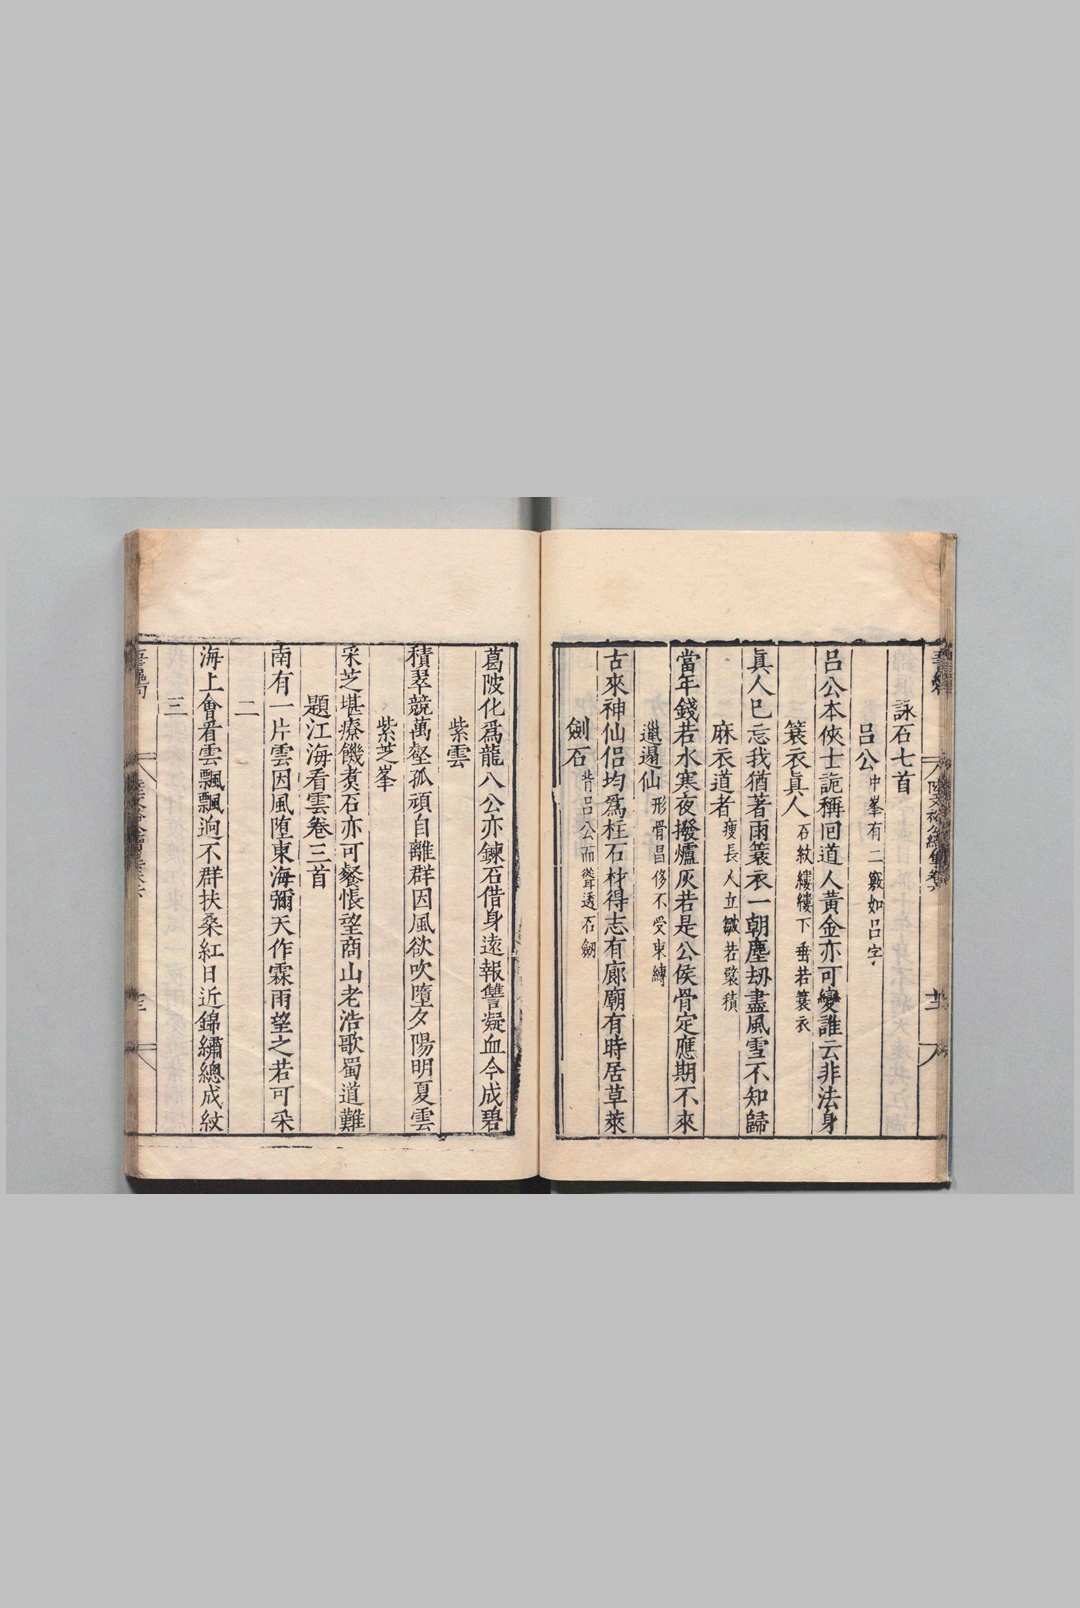 詠石七首
呂公 中峯有二竅如呂字
呂公本俠士詭稱回道人黃金亦可變誰云非法身
簑衣真人 石紋縷縷下垂若簑衣
眞人已忘我猶著雨簑衣一朝塵刼盡風雪不知歸
麻衣道者 瘦長人立皺若襞積
當年錢若水寒夜撥爐灰若是公侯骨定應期不來
邋遢仙 形骨昌侈不受束縛
古來神仙侶均爲柱石材得志有廊廟有時居草萊
劍石 背呂公而聳透石劒
葛陂化爲龍八公亦鍊石借身遠報讐凝血今成碧
紫雲
積翠競萬壑孤頑自離群因風欲吹墮夕陽明夏雲
紫芝峯
采芝堪療饑煮石亦可餐悵望商山老浩歌蜀道難
題江海看雲卷三首
南有一片雲因風墮東海彌天作霖雨望之若可采
二
海上曾看雲飄飄逈不群扶桑紅日近錦繡總成紋
三